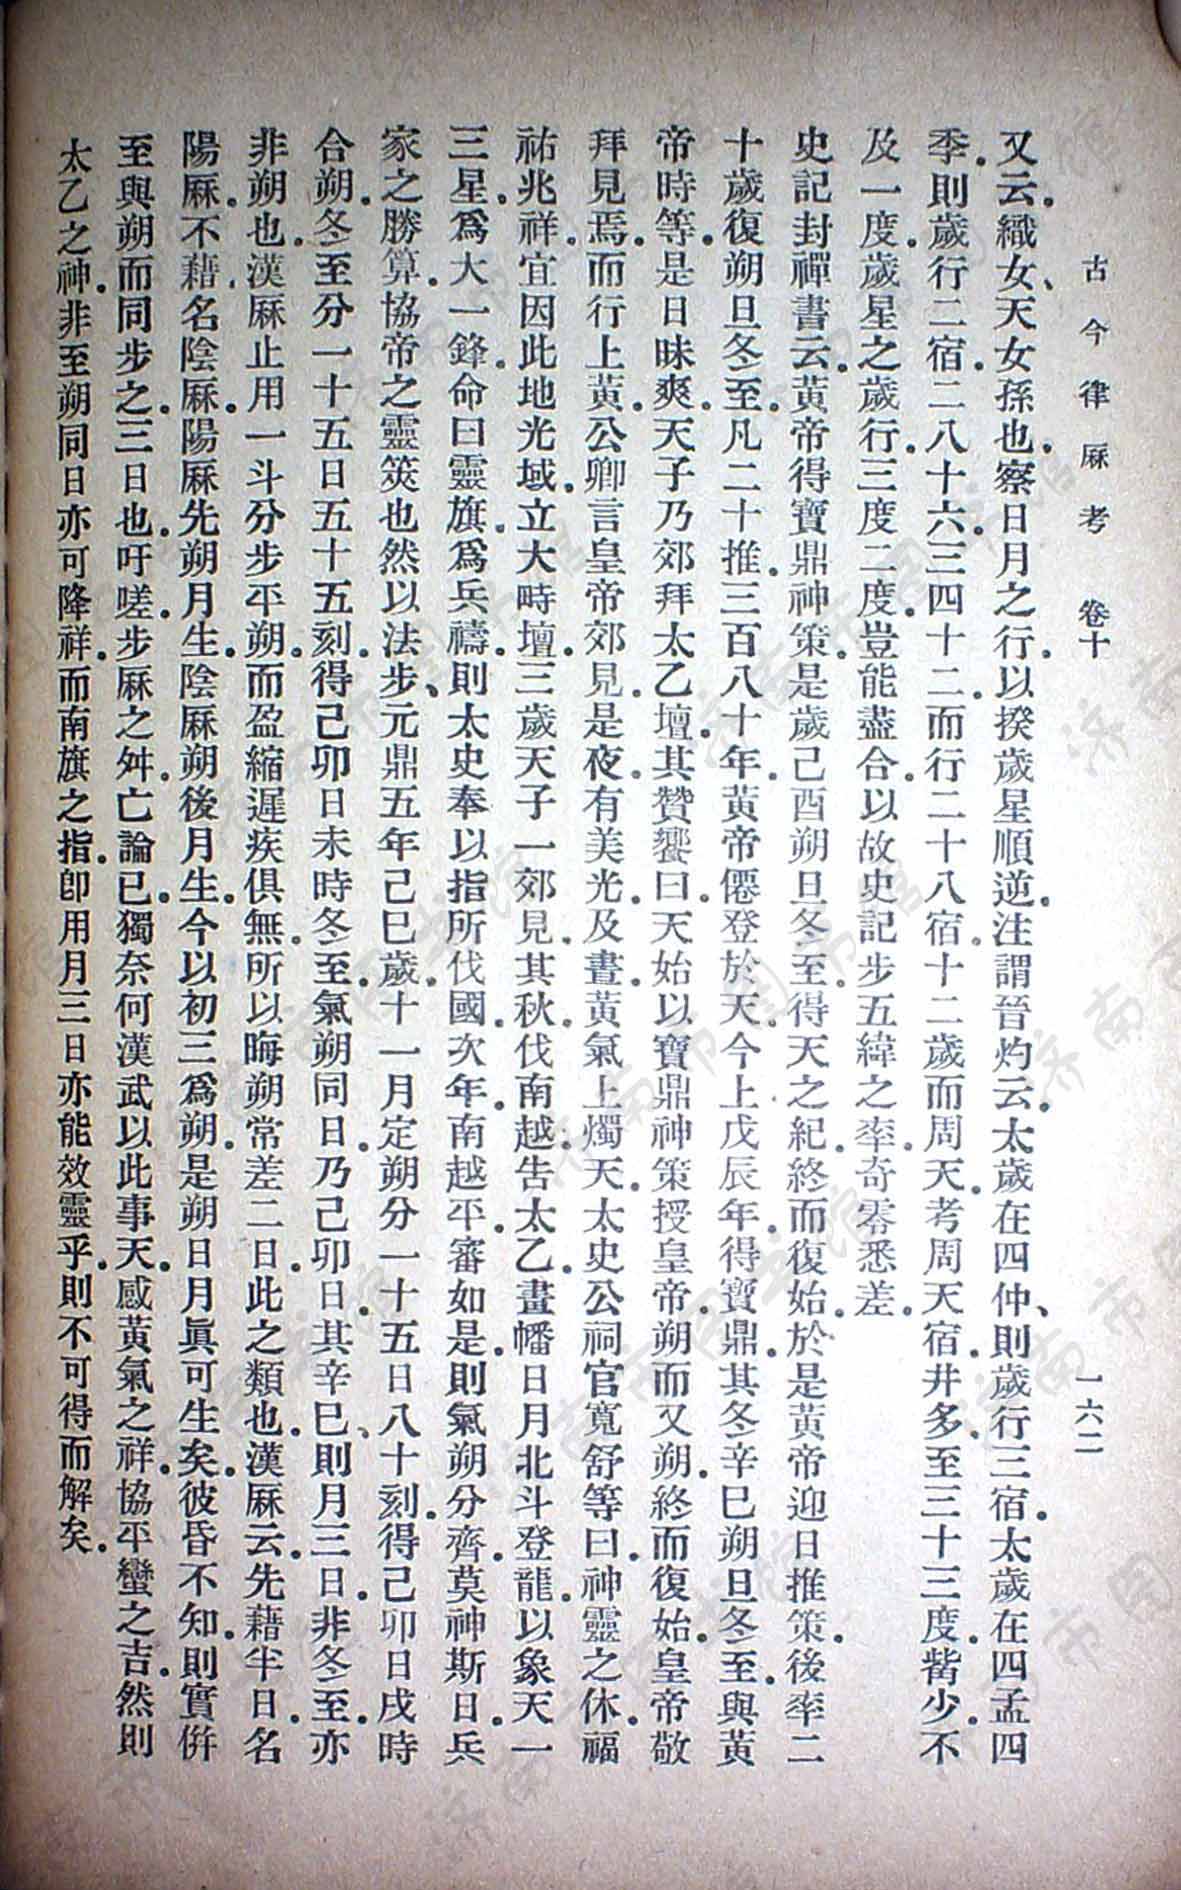 古今律厤考 卷十 一六二
又云。織女、天女孫也。察日月之行。以揆歲星順逆。注謂晉灼云。太歲在四仲、則歲行三宿。太歲在四孟四
季。則歲行二宿。二八十六。三四十二。而行二十八宿。十二歲而周天。考周天宿。井多至三十三度。觜少。不
及一度。歲星之歲行。三度二度。豈能盡合。以故史記步五緯之率。奇零悉差。
史記封禪書云。黃帝得寶鼎神策。是歲己酉朔旦冬至。得天之紀。終而復始。於是黃帝迎日推策。後率二
十歲復朔旦冬至。凡二十推。三百八十年。黃帝僊登於天。今上戊辰年。得寶鼎。其冬辛巳朔旦冬至。與黃
帝時等。是日昧爽。天子乃郊拜太乙壇。其贊饗曰。天始以寶鼎神策授皇帝。朔而又朔。終而復始。皇帝敬
拜見焉。而行上黃。公卿言皇帝郊見。是夜。有美光。及晝。黃氣上燭天。太史公祠官寬舒等曰。神靈之休。福
祐兆祥。宜因此地光域。立大畤壇。三歲天子一郊見。其秋。伐南越。告太乙。畫幡日月北斗登龍。以象天一
三星。爲大一鋒。命曰靈旗。爲兵禱。則太史奉以指所伐國。次年。南越平。審如是。則氣朔分齊。莫神斯日。兵
家之勝算。協帝之靈筴也。然以法步、元鼎五年己巳歲。十一月定朔分一十五日八十刻。得己卯日戌時
合朔。冬至分一十五日五十五刻。得己卯日未時冬至。氣朔同日。乃己卯日。其辛巳、則月三日。非冬至。亦
非朔也。漢厤止用一斗分步平朔。而盈縮遲疾俱無。所以晦朔常差二日。此之類也。漢厤云。先藉半日。名
陽厤。不藉。名陰厤。陽厤先朔月生。陰厤朔後月生。今以初三爲朔。是朔日月眞可生矣。彼昏不知。則實倂
至與朔而同步之。三日也。吁嗟。步厤之舛。亡論已。獨奈何漢武以此事天。感黃氣之祥。協平蠻之吉。然則
太乙之神。非至朔同日。亦可降祥。而南旗之指。卽用月三日。亦能效靈乎。則不可得而解矣。